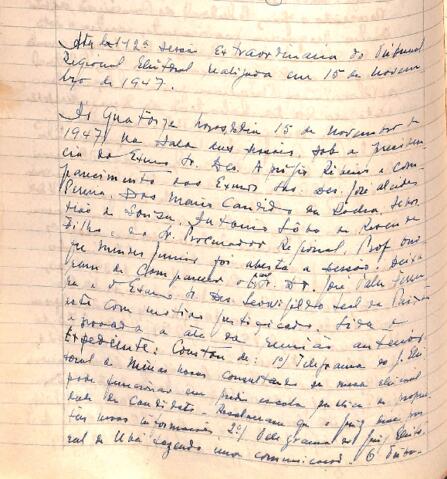 Ata da 142ª Sessão Extraordinaria do Tribunal
Regional Eleitoral realizada em 15 de novem
bro de 1947.
Ás quatorze horas do dia 15 de novembro de
1947, na sala das sessões, sob a presiden
cia do Exmo. Sr. Des. Aprigio Ribeiro e com
parecimento dos Exmos. Srs. Des. José Alcides
Pereira, Drs. Mario Candido da Rocha,
de Souza, Antonio
Filho e do Dr. Procurador Regional, Prof. Oni
que Mendes Junior foi aberta a sessão. Deixa
ram de comparecer o Dr. José
e o Exmo. Sr. Des. Leovigildo Leal da Paixão
este com motivo justificado. Lida e
aprovada a ata da reunião anterior
Expediente: Constou de: 1º) Telegrama do J. Elei
toral de Minas Novas consultando se mesa eleitoral
pode funcionar em predio escola publica de proprie
dade de candidato. Resolveram que o juiz
novas informações. 2º) Telegrama do juiz Eleito
ral de Ubá fazendo uma comunicação.